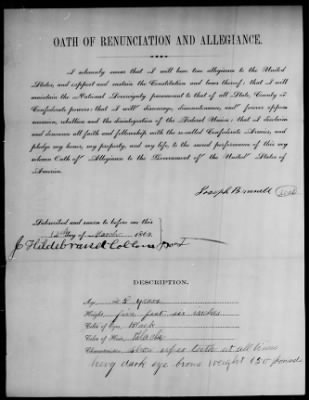 OATH OF RENUNCIATION AND ALLEGIANCE.
I solemnly swear that I will bear true allegiance to the United
States, and support and sustain the Constitution and laws thereof; that I will
maintain the National Sovereignty paramount to that of all State, County or
Confederate powers; that I will discourage, discountenance, and forever oppose
secession, rebellion and the disintegration of the Federal Union; that I disclaim
and denounce all faith and fellowship with the so-called Confederate Armies, and
pledge my honor, my property, and my life, to the sacred performance of this my
solemn Oath of Allegiance to the Government of the United States of
America.
Joseph
Subscribed and sworn to before me this
day of March 186
J Hildebrandt Collins
DESCRIPTION.
Age, 28 years
Height, five feet six inches
Color of Eyes, black
Color of Hair, black
Characteristics, teeth at all times
very dark eye brows weight 150 pounds